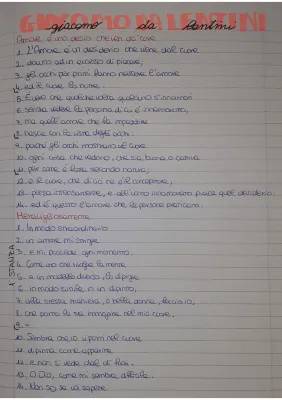 GIACOMO DA LENTINI
giacomo da Lentini
Amore è uno desio che ven da core
1. L'Amore è un desiderio che viene dal cuore
2. dovuto ad un eccesso di piacere,
3. gli occhi per primi fanno nascere l'amore
4. ed il cuore lo nutre.
5. È vero che qualche volta qualcuno si innamori
6. senza vedere la persona di cui è innamorato,
7. ma quell'amore che fa impazzire
8. nasce con la vista degli occhi.
9. perché gli occhi mostrano al cuore
10. ogni cosa che vedono, che sia buona o cattiva
11. per come è fatta secondo natura;
12. e il cuore, che di ciò ne è il concepitore,
13. pensa intensamente, e all'uomo innamorato piace quel desiderio
14. ed è questo l'amore che le persone praticano.
Meravigliosamente
1° STANZA
1. In modo straordinario
2. un amore mi stringe
3. e mi possiede ogni momento.
4. Come uno che volge la mente
5. a un modello diverso, lo dipinge
6. in modo simile, a un dipinto,
7. alla stessa maniera, o bella donna, faccio io,
8. che porto la tua immagine nel mio cuore.
9. -
10. Sembra che io vi porti nel cuore
11. dipinta come apparite
12. e non si vede dal di fuori.
13. O Dio, come mi sembra difficile.
14. Non so se vi sapere